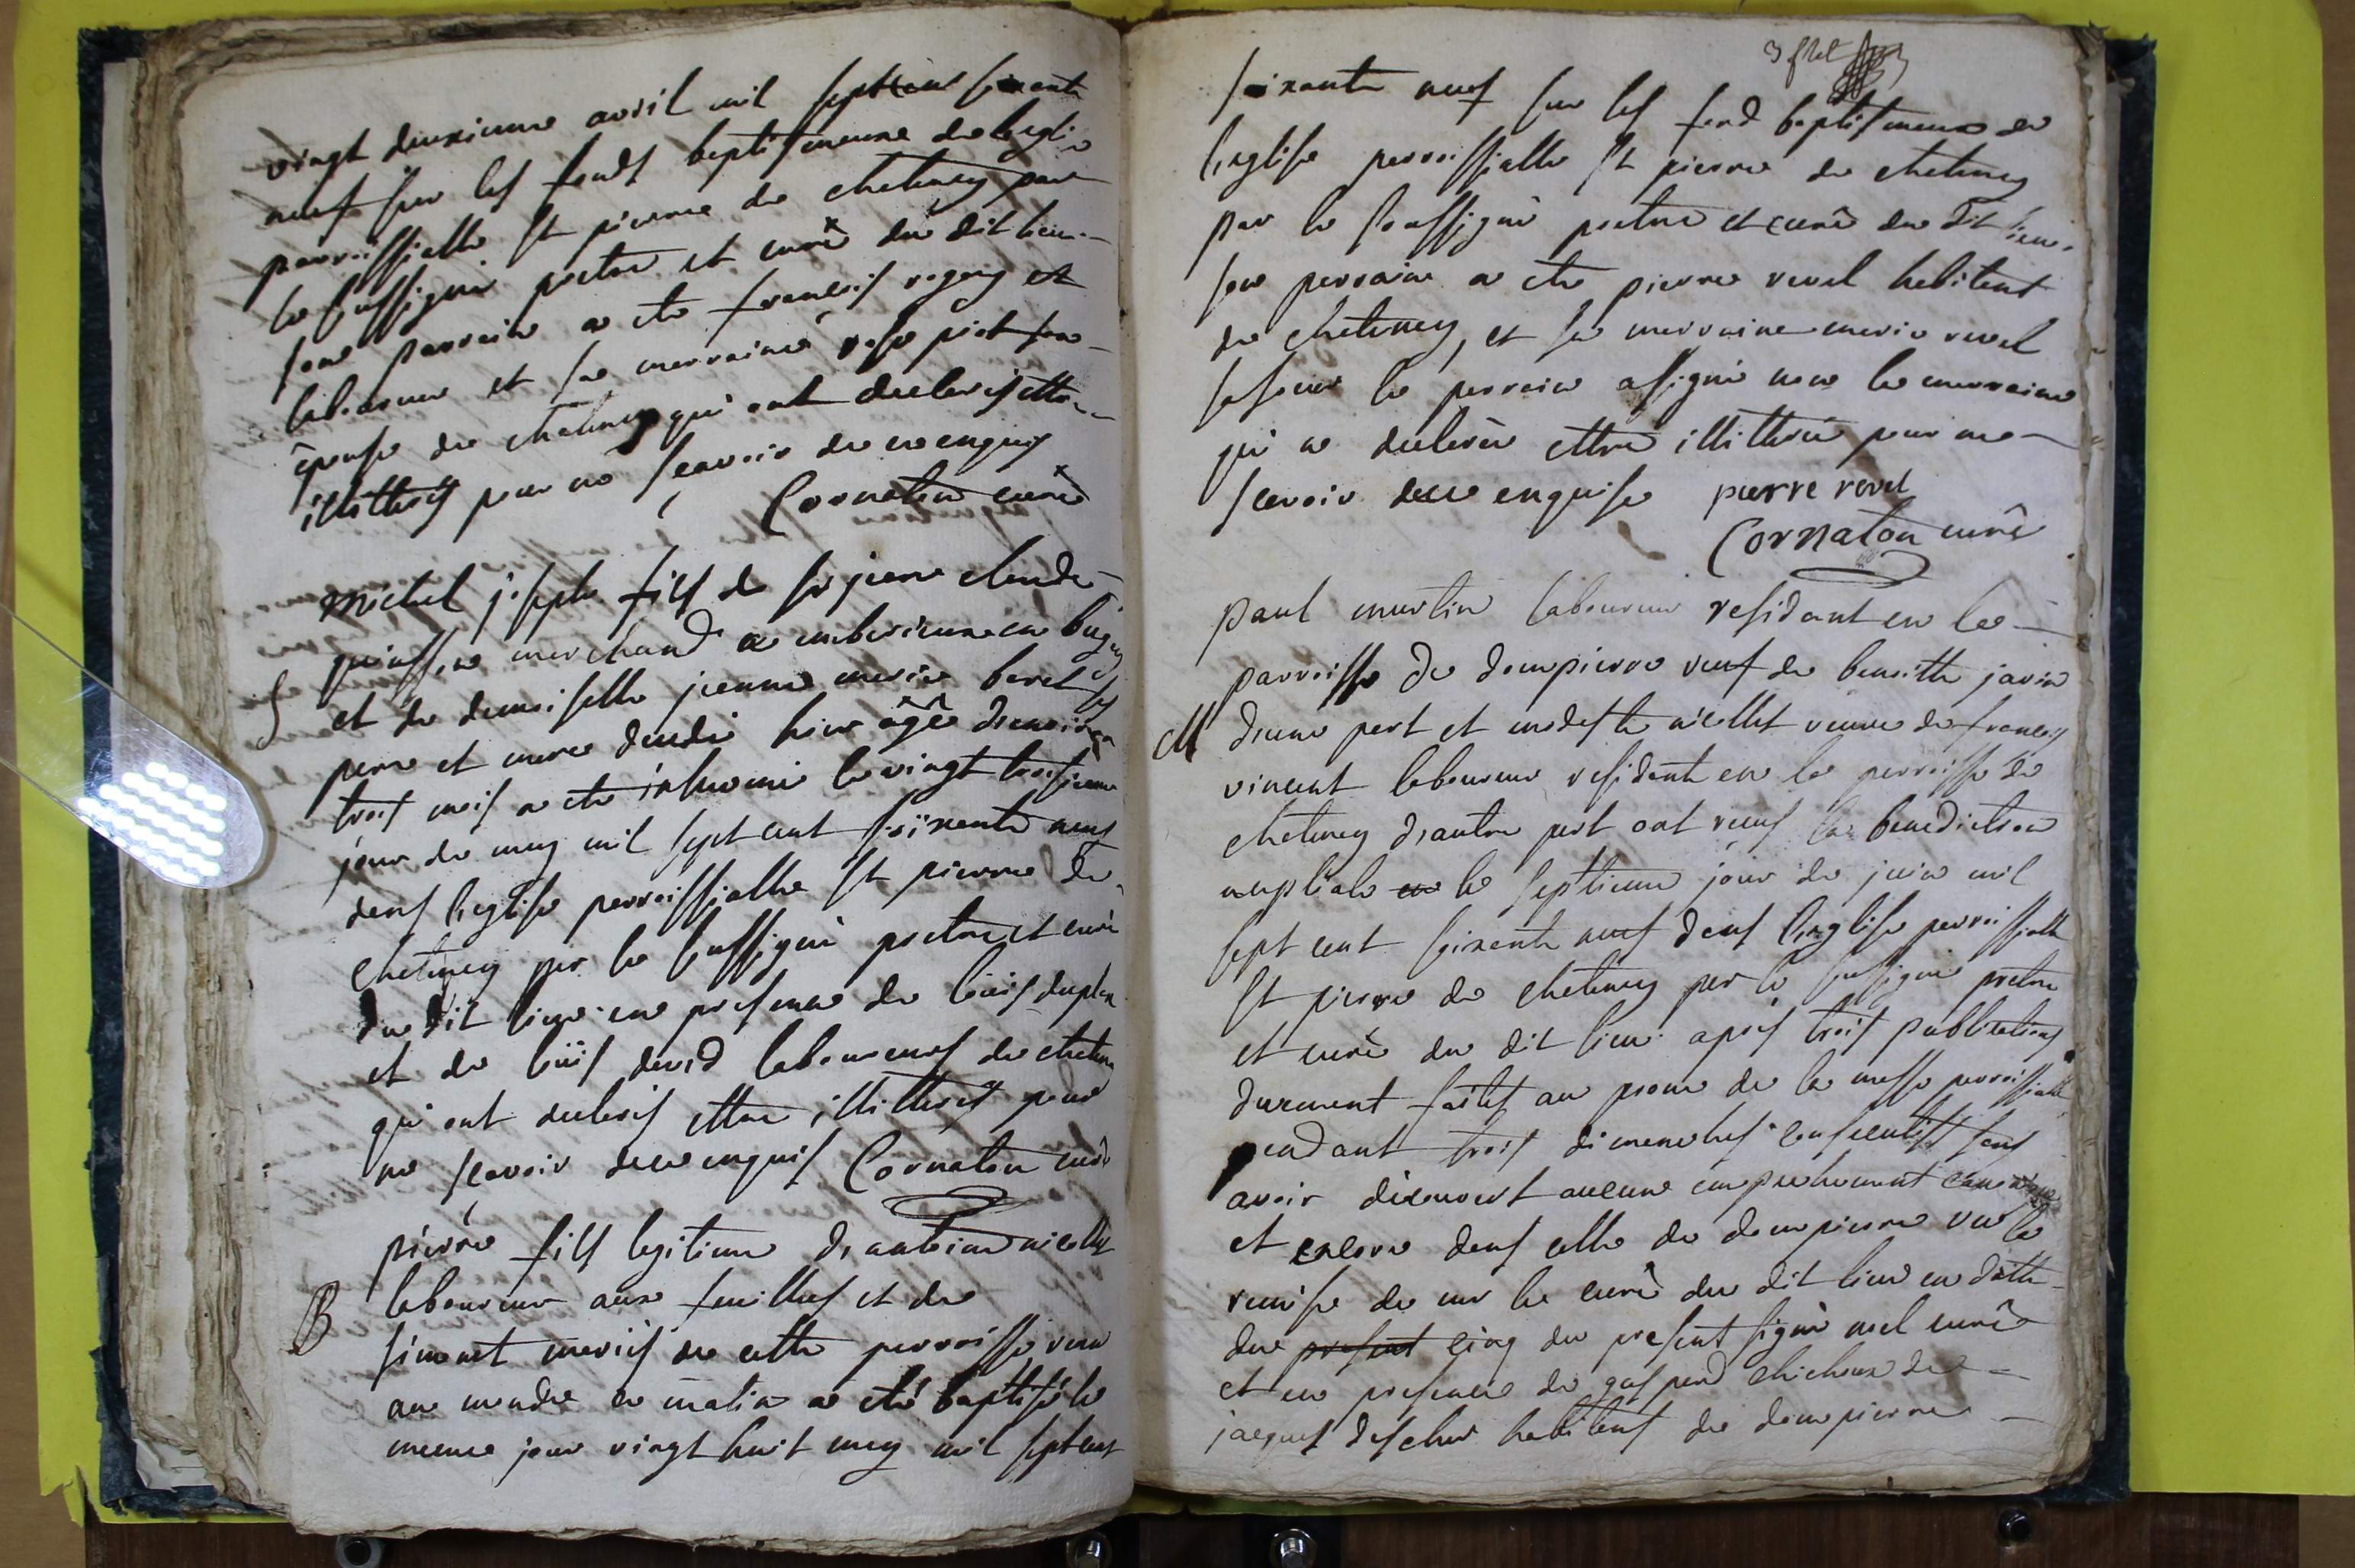 vingt deuxieme avril mil septcent soixante
neuf sur les fonds baptismeaux de l'eglise
parroissialle St pierre de chetenay par
le soussigné pretre et curé du dit lieu
son parrain a eté francois rogny et
laboureur et sa marraine rose piet son
épouse de chetenay qui ont declarés ettre
illitterés pour ne scavoir de ce enquis
Cornaton curé
michel joseph fils de sr jean claude
marchand a amberieux en bugey
S et de demoiselle jeanne marie
pere et mere decedé hier âgé d'environ
trois mois a eté inhumé le vingt troisieme
jour de may mil sept cent soixante neuf
dans l'eglise parroissialle St pierre de
chetenay par le soussigné pretre et curé
du dit lieu en presence de loüis duplan
et de loüis david laboureurs de chetenay
qui ont declarés ettre illitterés pour
ne scavoir de ce enquis Cornaton curé
pierre fils legitime d'antoine nicollet
B laboureur aux feuilles et de
simonet mariés de cette parroisse venu
au monde ce matin a eté baptisé le
meme jour vingt huit may mil septcent
soixante neuf sur les fond baptismeaux de
l'eglise parroissialle St pierre de chetenay
par le soussigné pretre et curé du dit lieu
son parrain a eté pierre revel habitant
de chetenay, et sa marraine marie revel
sa soeur le parrain a signé non la marraine
qui a declarée ettre illitterée pour ne
scavoir de ce enquise pierre revel
Cornaton curé
paul martin laboureur residant en la
parroisse de dompierre veuf de benoitte javin
M d'une part et modeste nicollet veuve de francois
vincent laboureur residante en la parroisse de
chetenay d'autre part ont reçus la benediction
nuptiale en le septieme jour de juin mil
sept cent soixante neuf dans l'eglise parroissialle
St pierre de chetenay par le soussigné pretre
et curé du dit lieu apres trois publications
durement faites au prone de la messe parroissialle
pendant trois dimenches consecutifs sans
avoir découvert aucune empechement canonique
et encore dans celle de dompierre vu la
remise de mr le curé du dit lieu en datte
du present cinq du present signé curé
et en presence de gaspard chichoux de
jacques habitans de dompierre